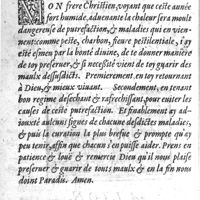 MON frere Christien, voyant que ceste année
fort humide, aduenante la chaleur sera moult
dangereuse de putrefaction, & maladies qui en vien-
nent: comme peste, charbon, fieure pestilentiale, i'ay
esté esmeu par la bonté diuine, de te donner maniere
de toy preseruer, & si necessité vient de toy guarir des
maulx dessusdicts. Premierement en toy retournant
à Dieu, & mieux viuant. Secondement, en tenant
bon regime desechant & rafreschissant, pour euiter les
causes de ceste putrefaction. Et finablement ay ad-
iouxté aulcuns signes de chascune desdictes maladies,
& puis la curation la plus brefue & prompte qu'ay
peu tenir, affin que chacun s'en puisse aider. Prens en
patience & loue & remercie Dieu qu'il nous plaise
preseruer & guarir de touts maulx & en la fin nous
doint Paradis. Amen.